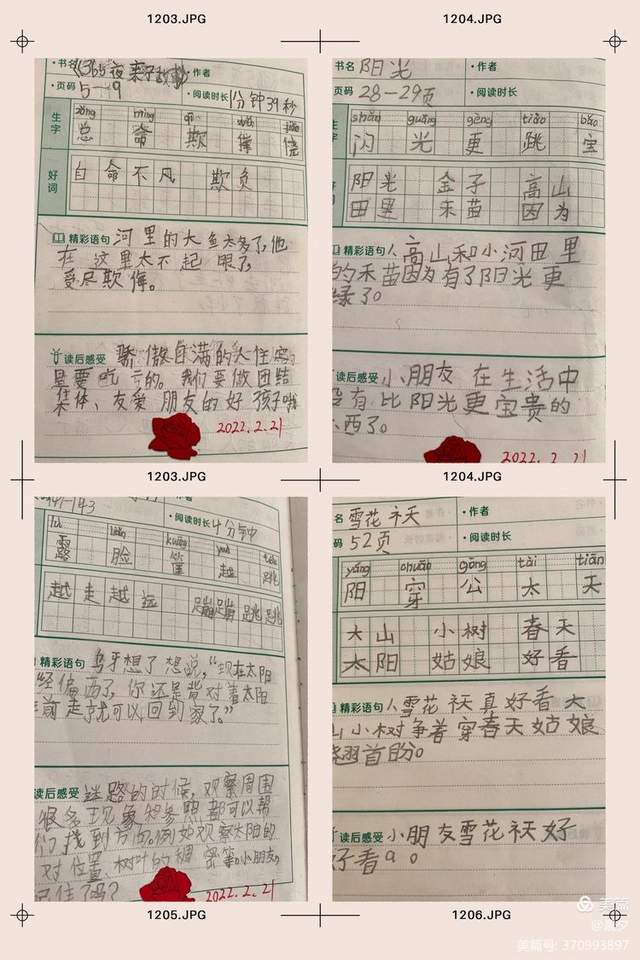 1203.JPG
1204.JPG
·书名《365夜亲子故事》·作者
·页码 5-9 ·阅读时长 1分钟39秒
zǒng mìng qī
生字 总 命 欺 侮 饶
好词 自命不凡 欺负
精彩语句 河里的大鱼太多了,他
在这里太不起眼了,
受尽欺侮。
读后感受 骄傲自满的人往往
是要吃亏的。我们要做团结
集体、友爱朋友的好孩子哦
2022.2.21
书名 阳光 ·作者
页码 28-29页 ·阅读时长
shǎn guāng gèng tiào bǎo
字 闪 光 更 跳 宝
阳光 金子 高山
田里 禾苗 因为
精彩语句 人高山和小河田里
的禾苗因为有了阳光更
绿了。
读后感受 小朋友在生活中
没有比阳光更宝贵的
东西了。
2022.2.21
1203.JPG
1204.JPG
143 ·作者
·阅读时长 4分钟
露 脸 筐 越 跳
越走越远 蹦蹦跳跳
精彩语句 乌牙想了想说,“现在太阳
经偏西了,你还是背对着太阳
往前走就可以回到家了。”
读后感受 迷路的时候,观察周围
很多现象和参照都可以帮
们找到方向。例如观察太阳的
对位置、树叶的稠密等。小朋友,
记住了吗?
2022.2.21
名 雪花 ·作者
码 52页 ·阅读时长
yáng chuān gōng tài tiān
阳 穿 公 太 天
大山 小树 春天
太阳 姑娘 好看
精彩语句 人雪花 真好看大
山小树争着穿春天姑娘
翘首盼。
读后感受 小朋友雪花 好
好看
1205.JPG
1206.JPG
美篇
美篇号: 370993897